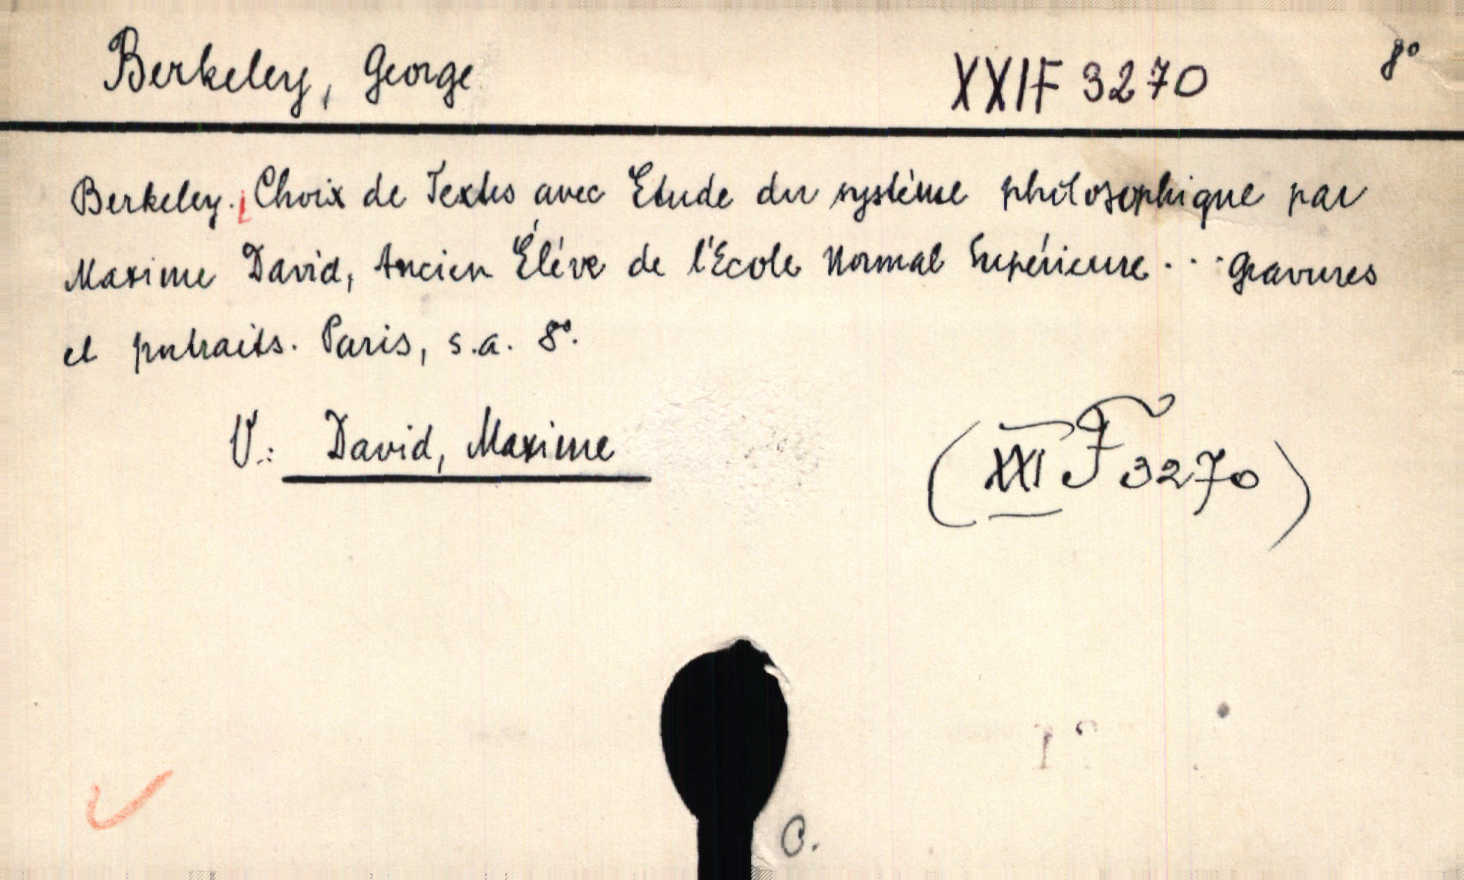 Berkeley, George XXI F 3270 8°
Berkeley. Choix de Textes avec Etude du système philosophique par
Maxime David, Ancien Élève de l'Ecole Normal Supérieure... Gravures
et portraits. Paris, s.a. 8°.
V.: David, Maxime
(XXI F 3270)
C.